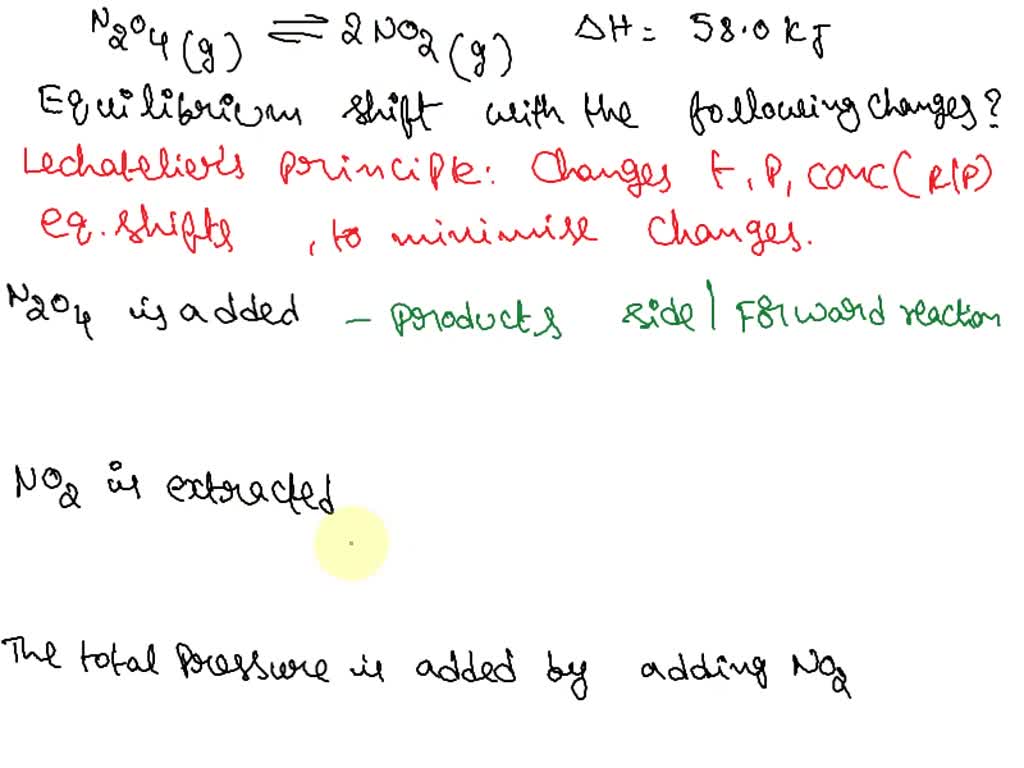 N2O4(g) ⇌ 2NO2(g) ΔH = 58.0 kJ
Equilibrium shift with the following changes?
Lechatelier's principle: Changes t, P, conc(R/P)
eq. shifts, to minimise changes.
N2O4 is added - products side | Forward reaction
NO2 is extracted
The total Pressure is added by adding NO2